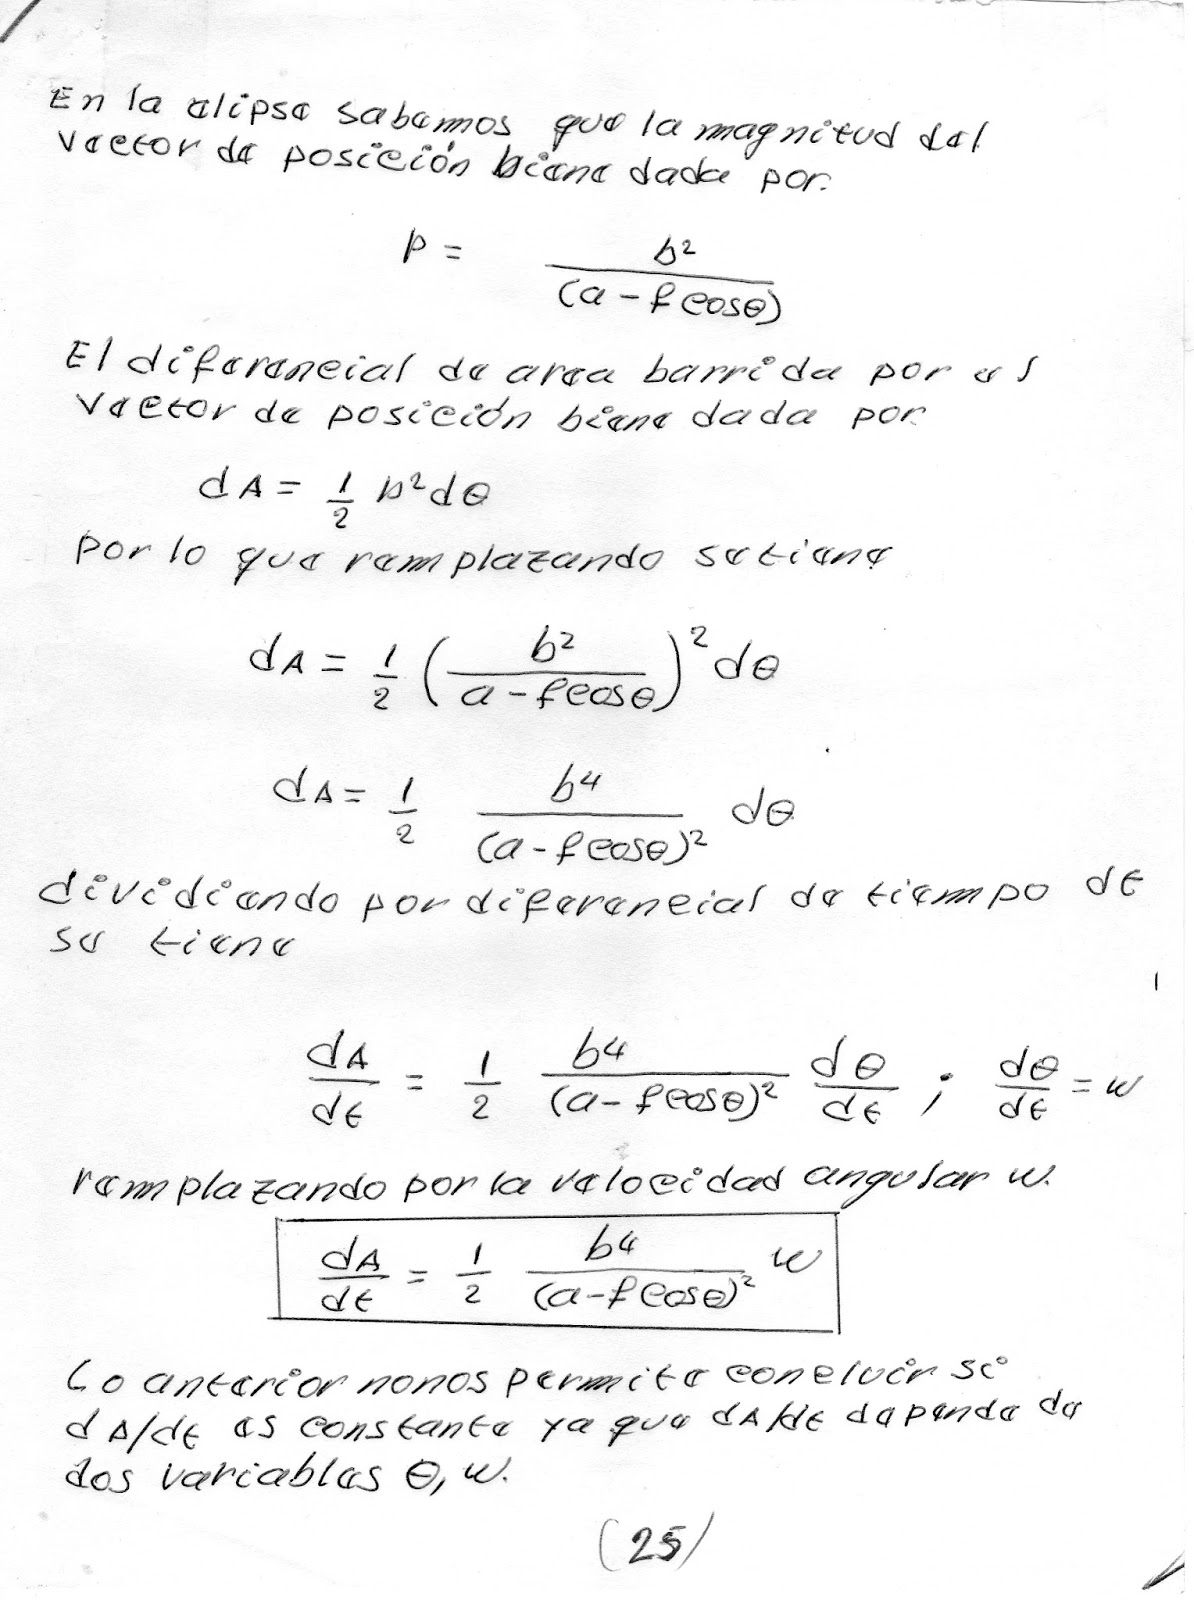 En la elipse sabemos que la magnitud del
vector de posición biene dada por.
p = b² / (a - f cosθ)
El diferencial de area barrida por el
vector de posición biene dada por
dA = 1/2 p² dθ
por lo que remplazando se tiene
dA = 1/2 (b² / (a - f cosθ))² dθ
dA = 1/2 b⁴ / (a - f cosθ)² dθ
dividiendo por diferencial de tiempo dt
se tiene
dA/dt = 1/2 b⁴ / (a - f cosθ)² dθ/dt ; dθ/dt = w
remplazando por la velocidad angular w.
dA/dt = 1/2 b⁴ / (a - f cosθ)² w
Lo anterior no nos permite concluir si
dA/dt es constante ya que dA/dt depende de
dos variables θ, w.
(25)